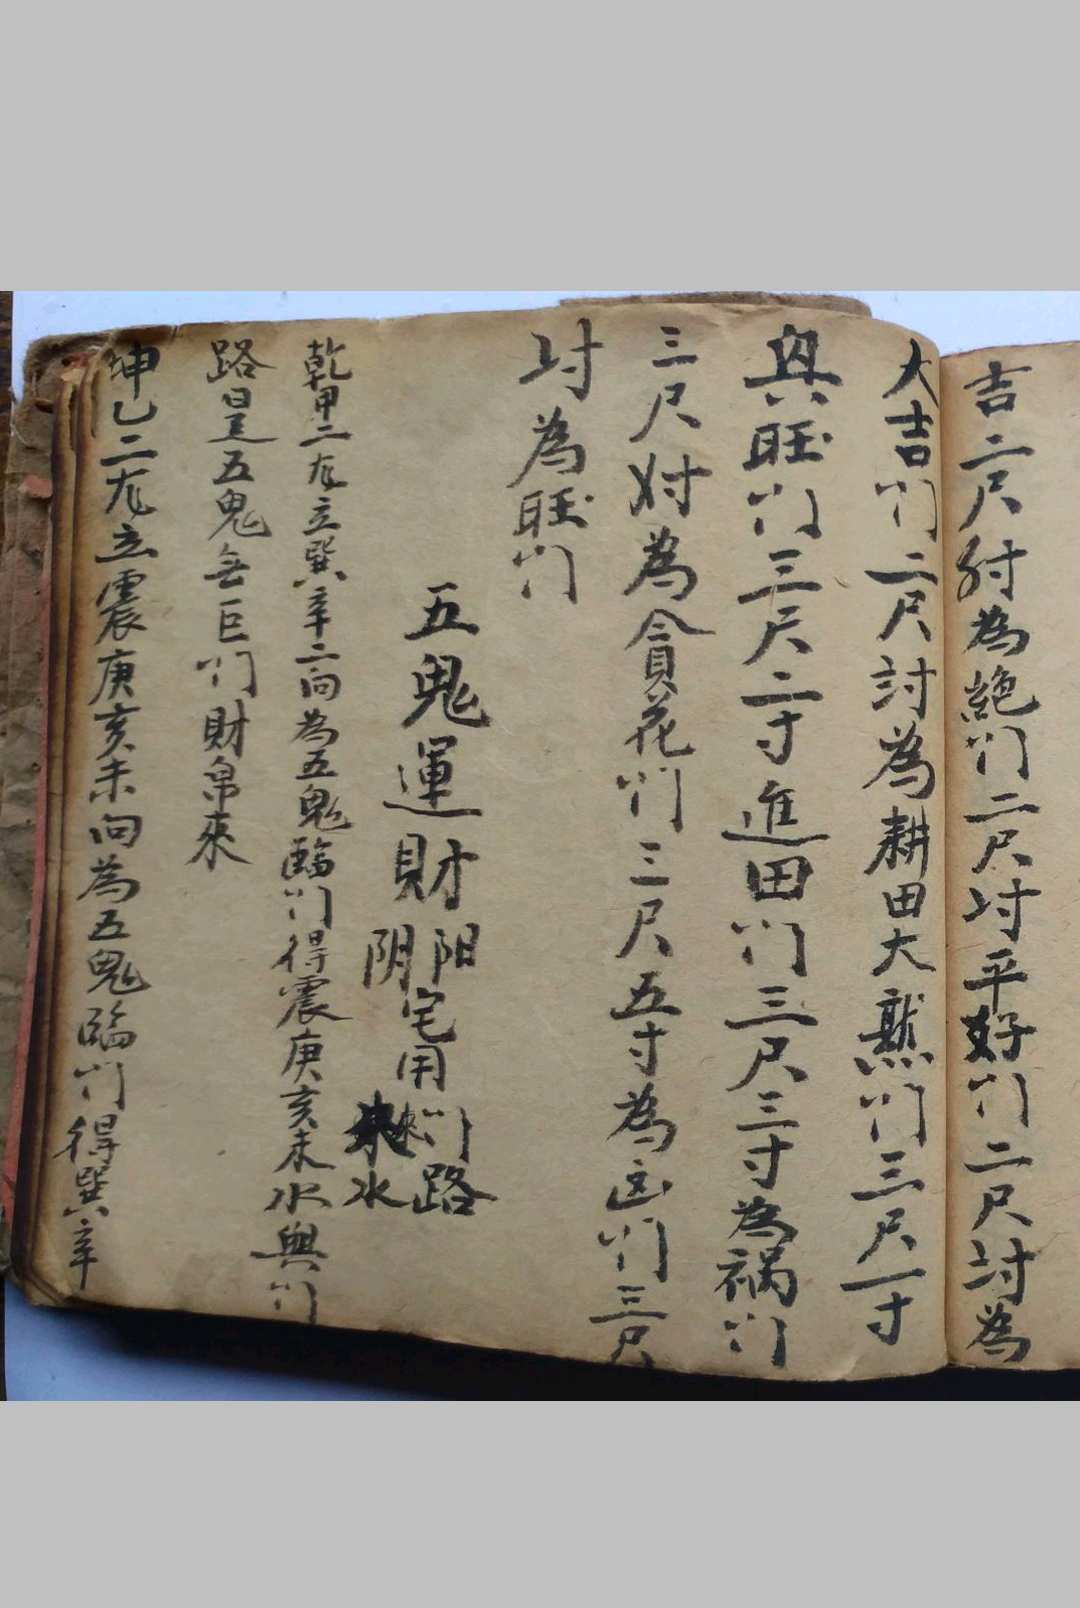 吉二尺㭙為絶门二尺㕚平好门二尺討為
大吉门二尺討為耕田大熟门三尺一寸
與旺门三尺二寸進田门三尺三寸為祸门
三尺対為貪花门三尺五寸為凶门三尺
为旺门
五鬼運財阳宅用门路
阴 水
乾甲二龙立巽辛二向為五鬼臨门得震庚亥未水與门
路是五鬼去巨门財帛來
坤乙二龙立震庚亥未向為五鬼臨门得巽辛